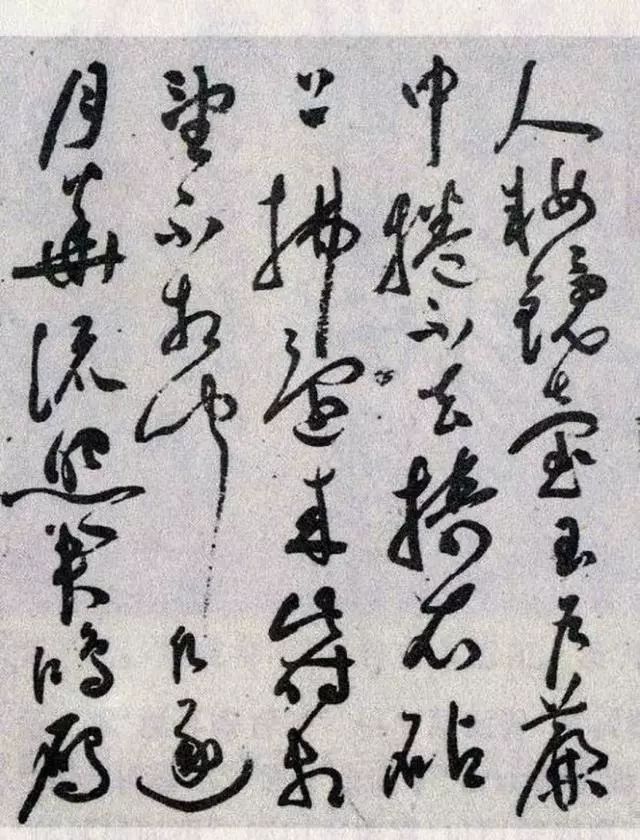 人粧鏡臺玉户簾
中捲不去擣衣砧
上拂還来此時相
望不相聞願逐
月華流照君鴻鴈